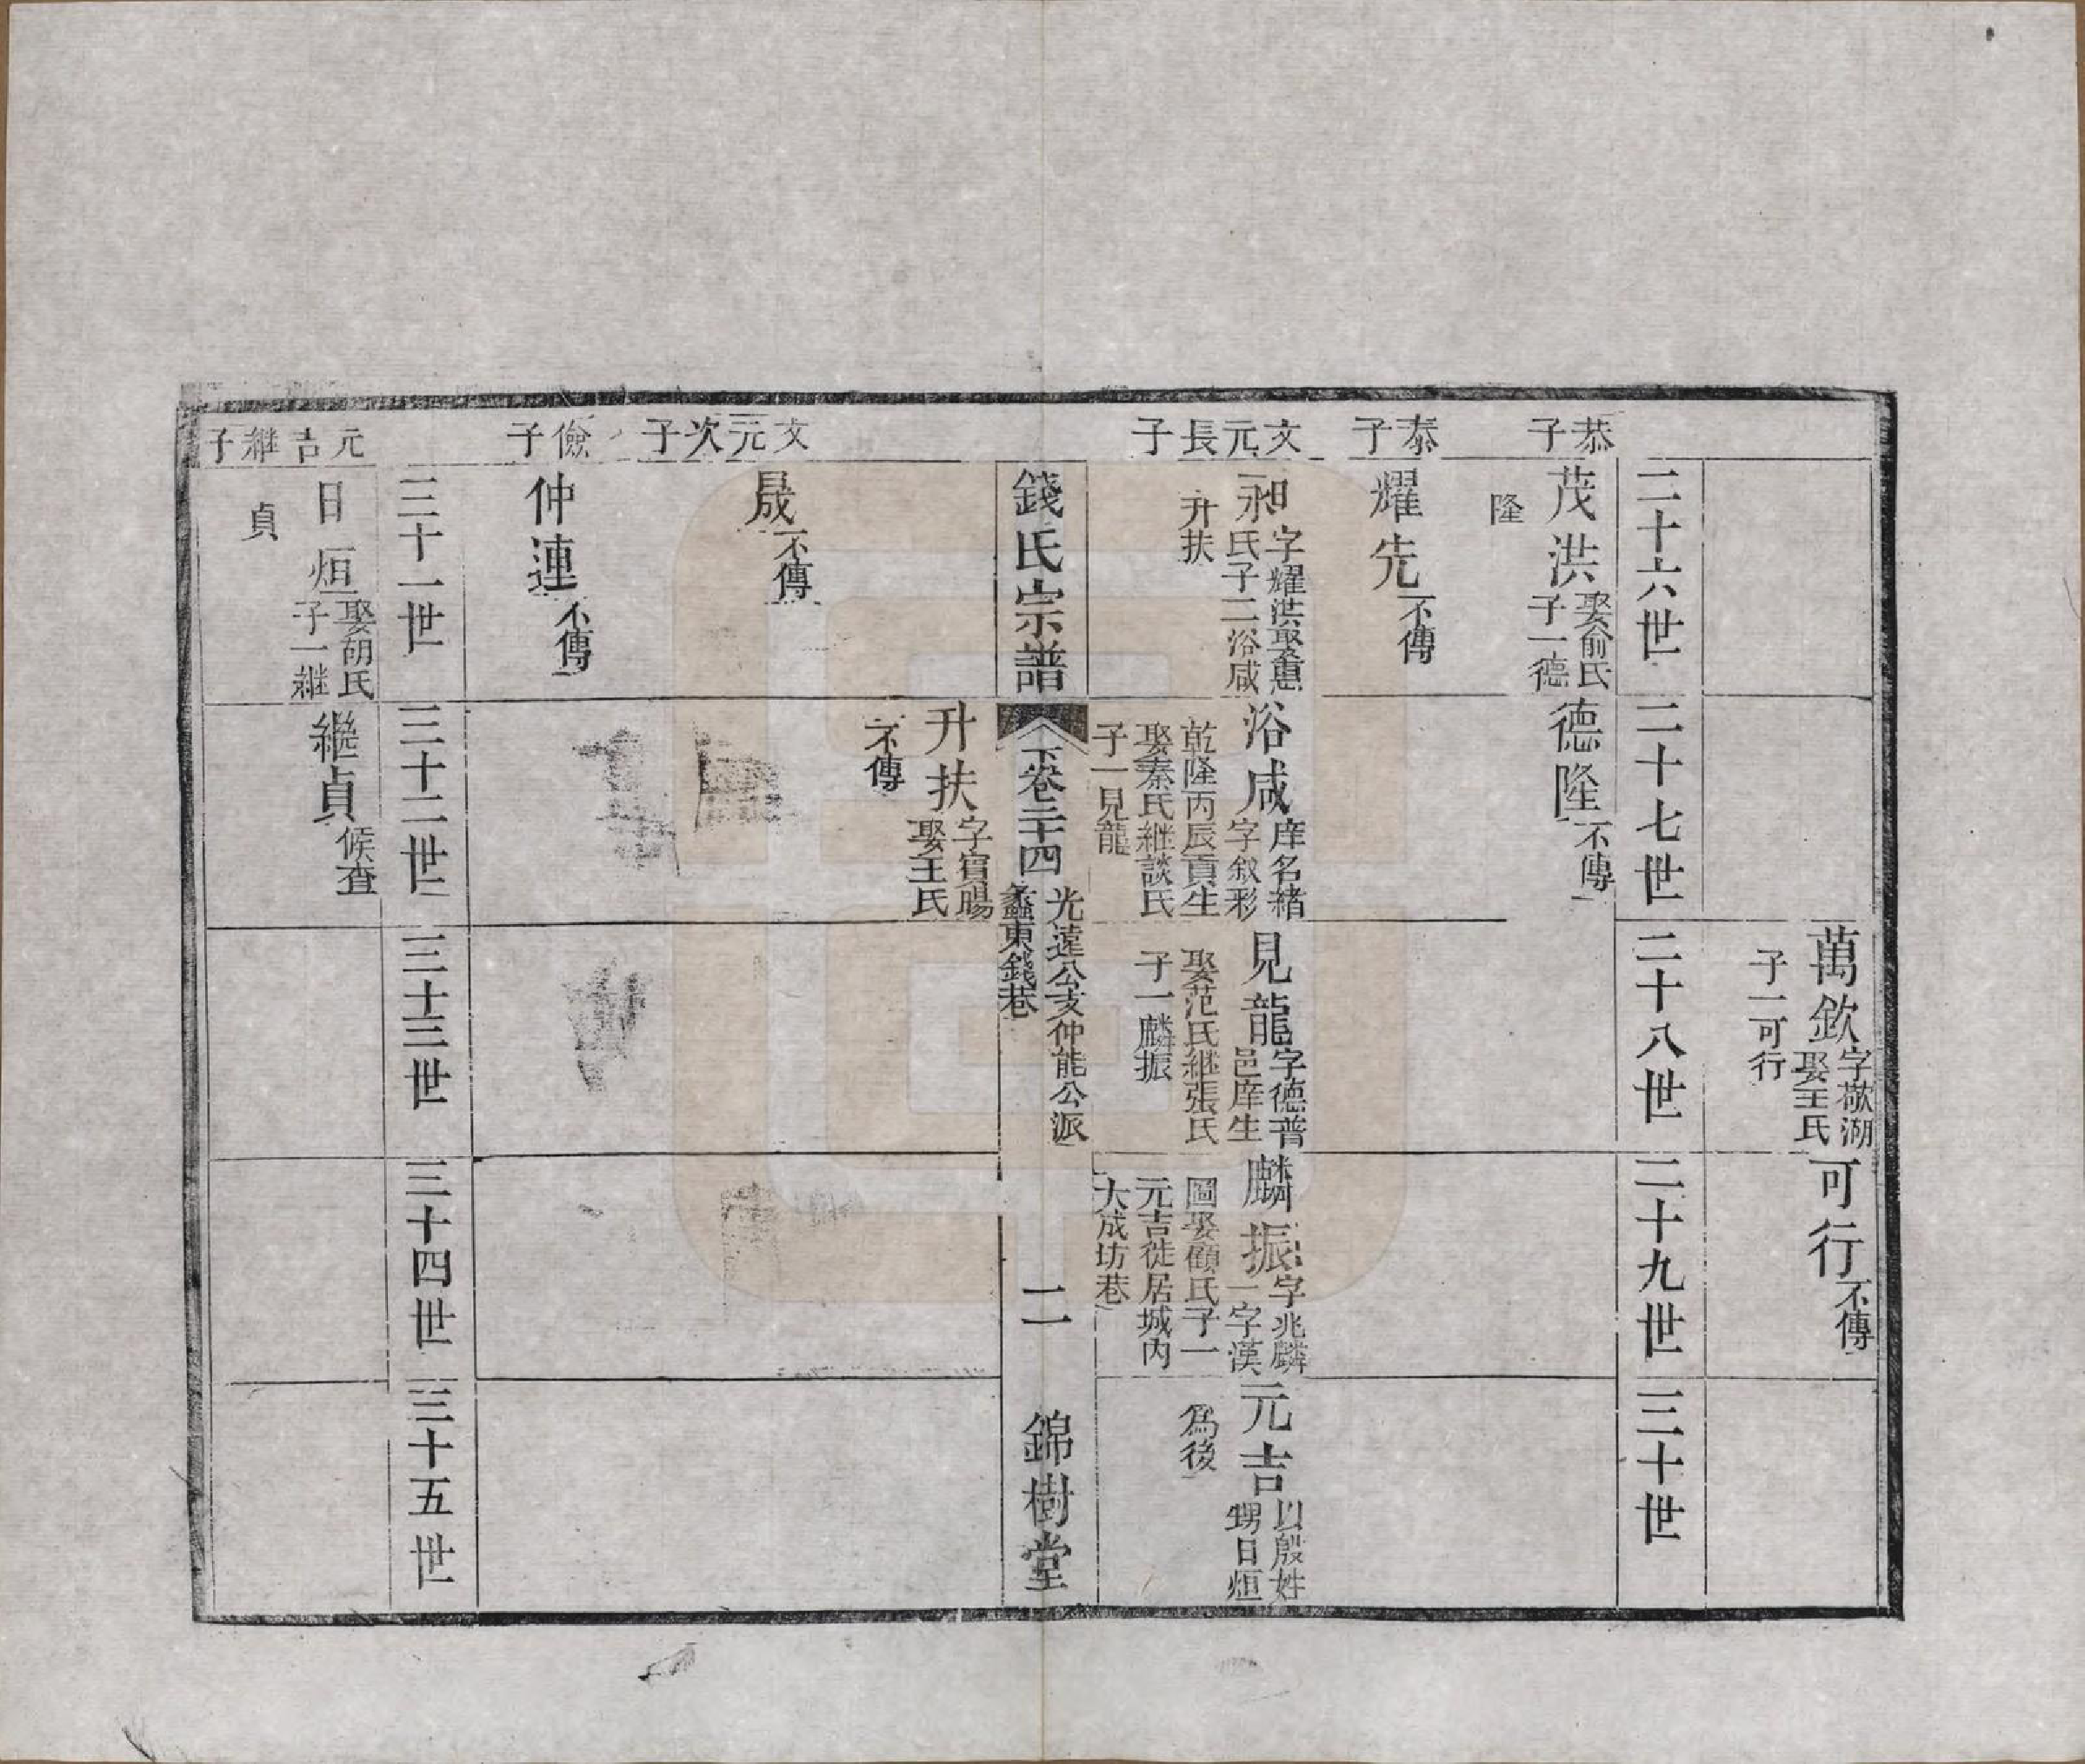 萬欽
字歡湖
娶王氏
子一可行
可行
不傳
二十六世
二十七世
二十八世
二十九世
三十世
恭子
茂洪
娶俞氏
子一德
隆
德隆
不傳
泰子
耀先
不傳
文元長子
永和
字耀洪娶惠
氏子二浴咸
升扶
浴咸
庠名緒
字叙彩
乾隆丙辰貢生
娶秦氏繼談氏
子一見龍
見龍
字德普
邑庠生
娶范氏繼張氏
子一麟振
麟振
字兆麟
一字漢
圖娶顧氏子一
元吉徙居城內
大成坊巷
元吉
以殷姓
甥日烜
為後
錢氏宗譜
下卷二十四
光遠公支仲能公派
蠡東錢巷
二
錦樹堂
升扶
字賓暘
娶王氏
不傳
文元次子
晟
不傳
儉子
仲連
不傳
三十一世
三十二世
三十三世
三十四世
三十五世
元吉繼子
日烜
娶胡氏
子一繼
貞
繼貞
候查